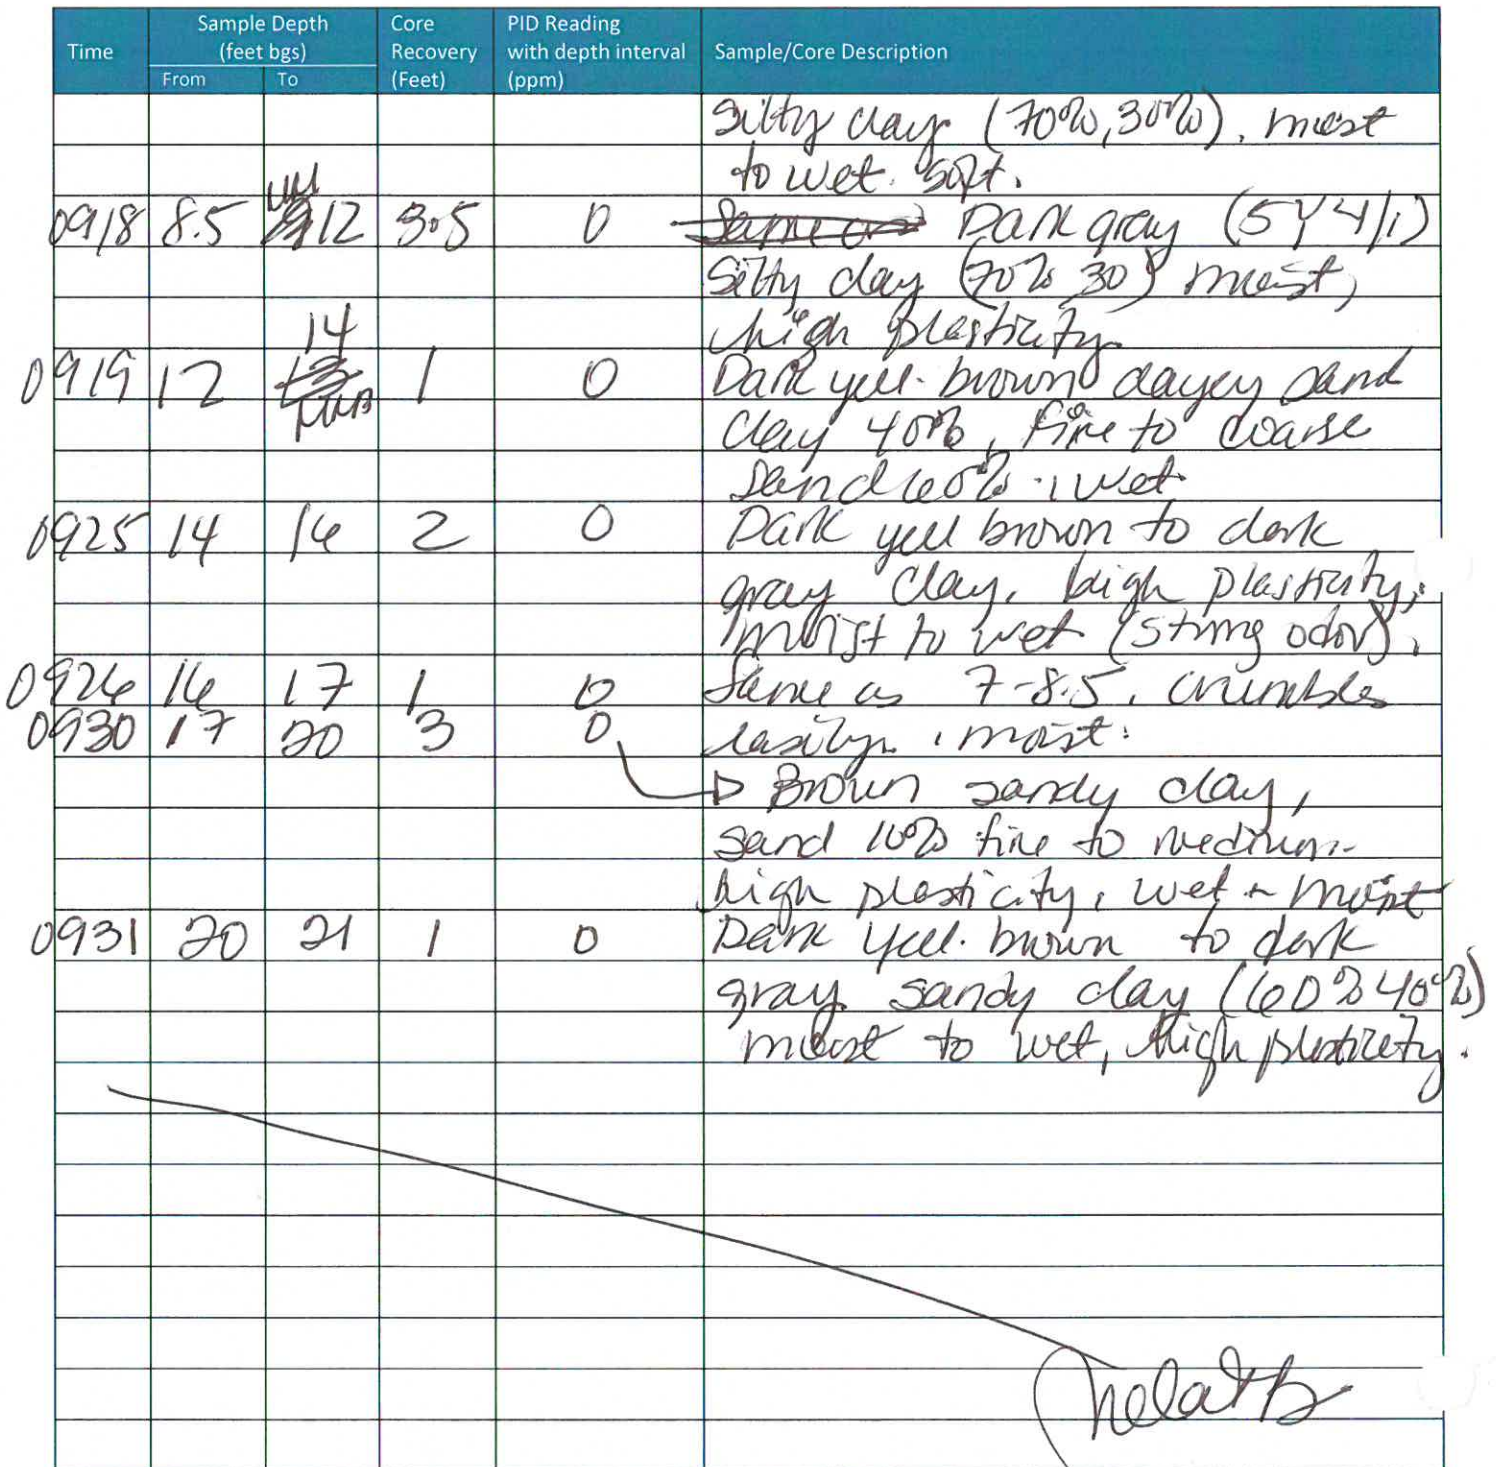 Time Sample Depth (feet bgs) From To Core Recovery (Feet) PID Reading with depth interval (ppm) Sample/Core Description
Silty clay (70%, 30%), moist
to wet. Soft.
0918 8.5 12 3.5 0 Same as Dark gray (5Y 4/1)
Silty clay (70% 30) moist,
high plasticity.
0919 12 14 1 0 Dark yell. brown clayey sand
Clay 40%, fine to coarse
Sand 60%, wet.
0925 14 16 2 0 Dark yell brown to dark
gray Clay, high plasticity,
moist to wet (strong odor).
0926 16 17 1 0 Same as 7-8.5, crumbles
0930 17 20 3 0 easily, moist.
Brown sandy clay,
sand 10% fine to medium.
high plasticity, wet - moist
0931 20 21 1 0 Dark yell. brown to dark
gray sandy clay (60% 40%)
moist to wet, high plasticity.